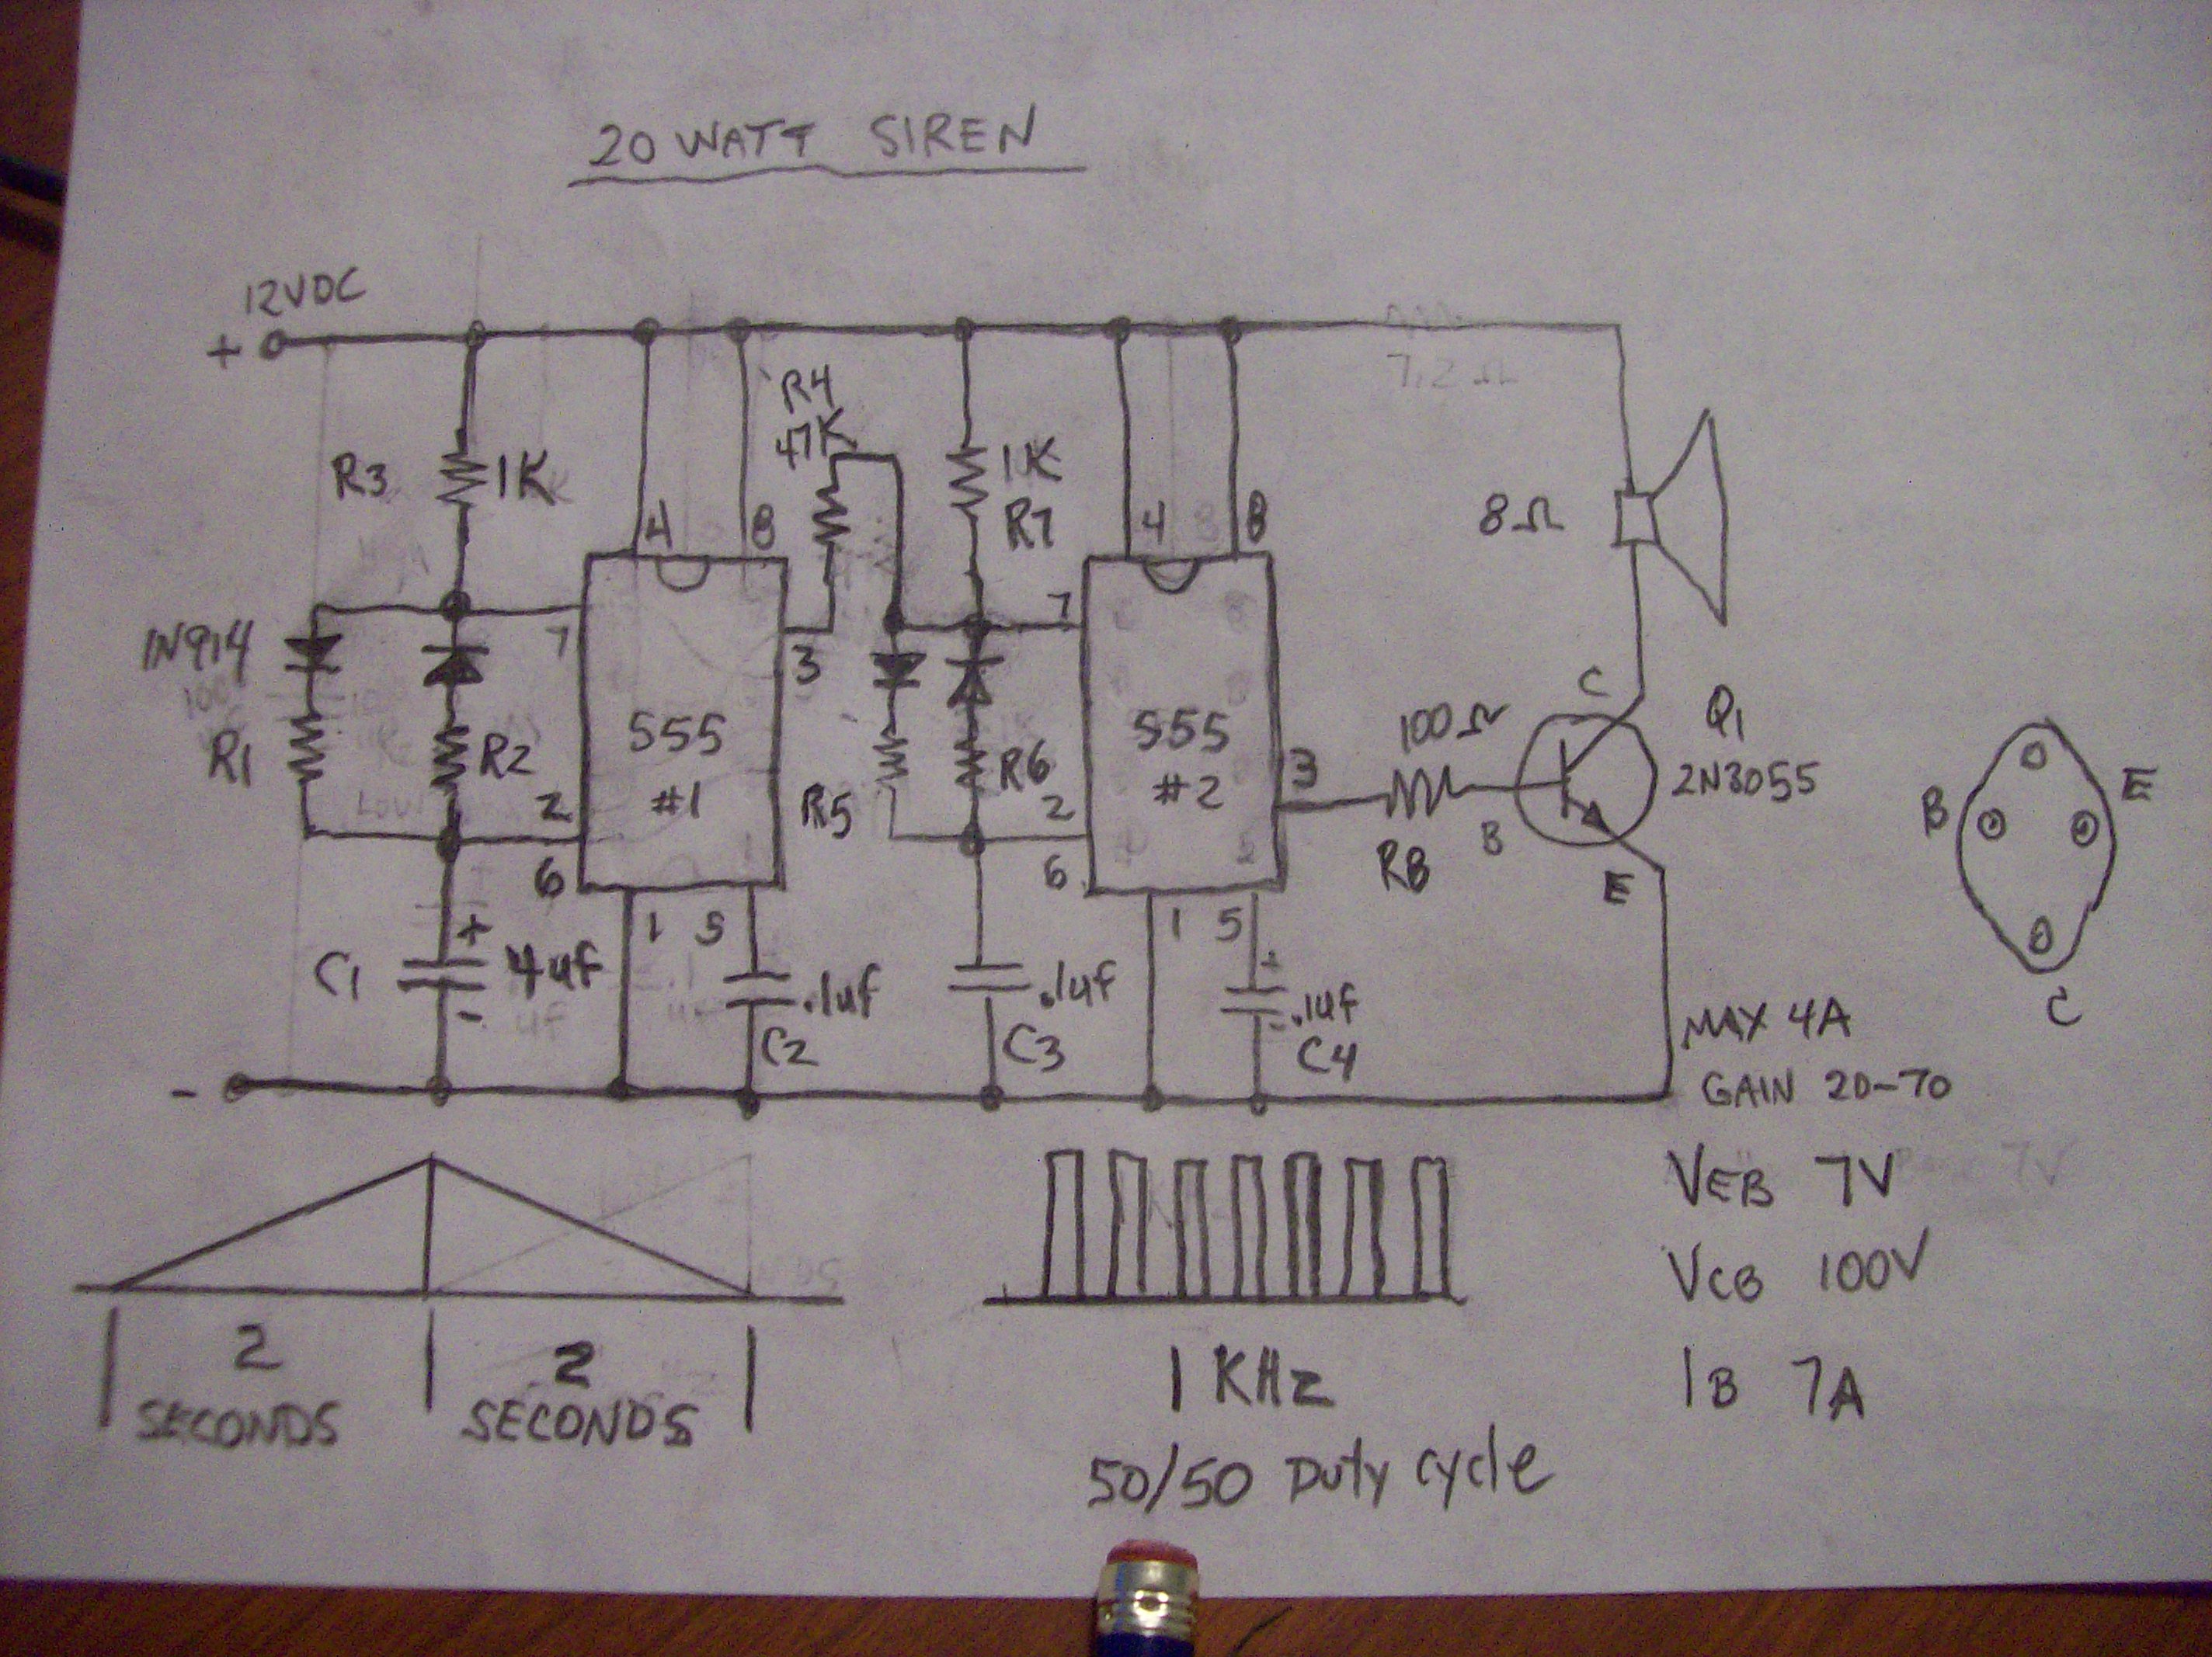 20 WATT SIREN
12VDC
+
R3 1K
R4
47K
1K
R7
4 8
4 8
8Ω
1N914
7
3
7
R1
R2
555
#1
2
6
R5
R6
2
6
555
#2
3
100Ω
R8
C
B
E
Q1
2N3055
B
E
C
1 5
1 5
C1
+
4uf
-
.1uf
C2
.1uf
C3
+
.1uf
C4
-
7.2Ω
MAX 4A
GAIN 20-70
VEB 7V
VCB 100V
IB 7A
2
SECONDS
2
SECONDS
1 KHz
50/50 Duty cycle